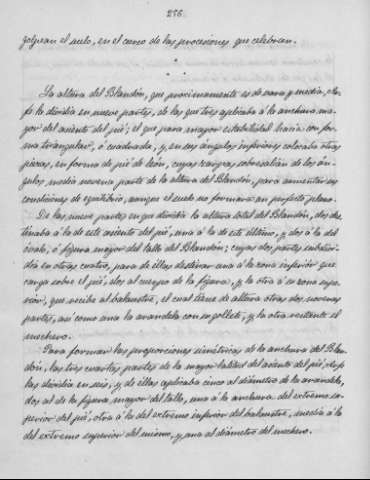 276.
golpean el suelo, en el curso de las procesiones que celebran.
La altura del Blandón, que proximamente es de vara y media,
la dividia en nueve partes, de las que tres aplicaba á la anchura ma-
yor del asiente del pié; el que para mayor estabilidad hacia con for-
ma triangular, ó cuadrada, y en sus ángulos inferiores colocaba otras
piezas, en forma de pié de león, cuyas zarpas sobresalian de los án-
gulos media novena parte de la altura del Blandón, para aumentar sus
condiciones de equilibrio, aunque el suelo no formara un perfecto plano.
De las nueve partes en que dividia la altura total del Blandón, dos des-
tinaba á la de este asiento del pié, una á la de este último, y dos á la del
óvalo, ó figura mayor del tallo del Blandón; cuyas dos partes subdivi-
dia en otras cuatro, para de ellas destinar una á la zona inferior que
carga sobre el pié, dos al cuerpo de la figura, y la otra á su zona supe-
rior, que recibe al balaustre, el cual tiene de altura otras dos novenas
partes, así como una la arandela con su gollete, y la otra restante el
mechero.
Para formar las proporciones simétricas de la anchura del Blan-
dón, las tres cuartas partes de la mayor latitud del asiento del pié,
las dividia en seis, y de ellas aplicaba cinco al diámetro de la arandela,
dos al de la figura mayor del tallo, una á la anchura del extremo su-
perior del pié, otra á la del extremo inferior del balaustre, media á la
del extremo superior del mismo, y una al diámetro del mechero.